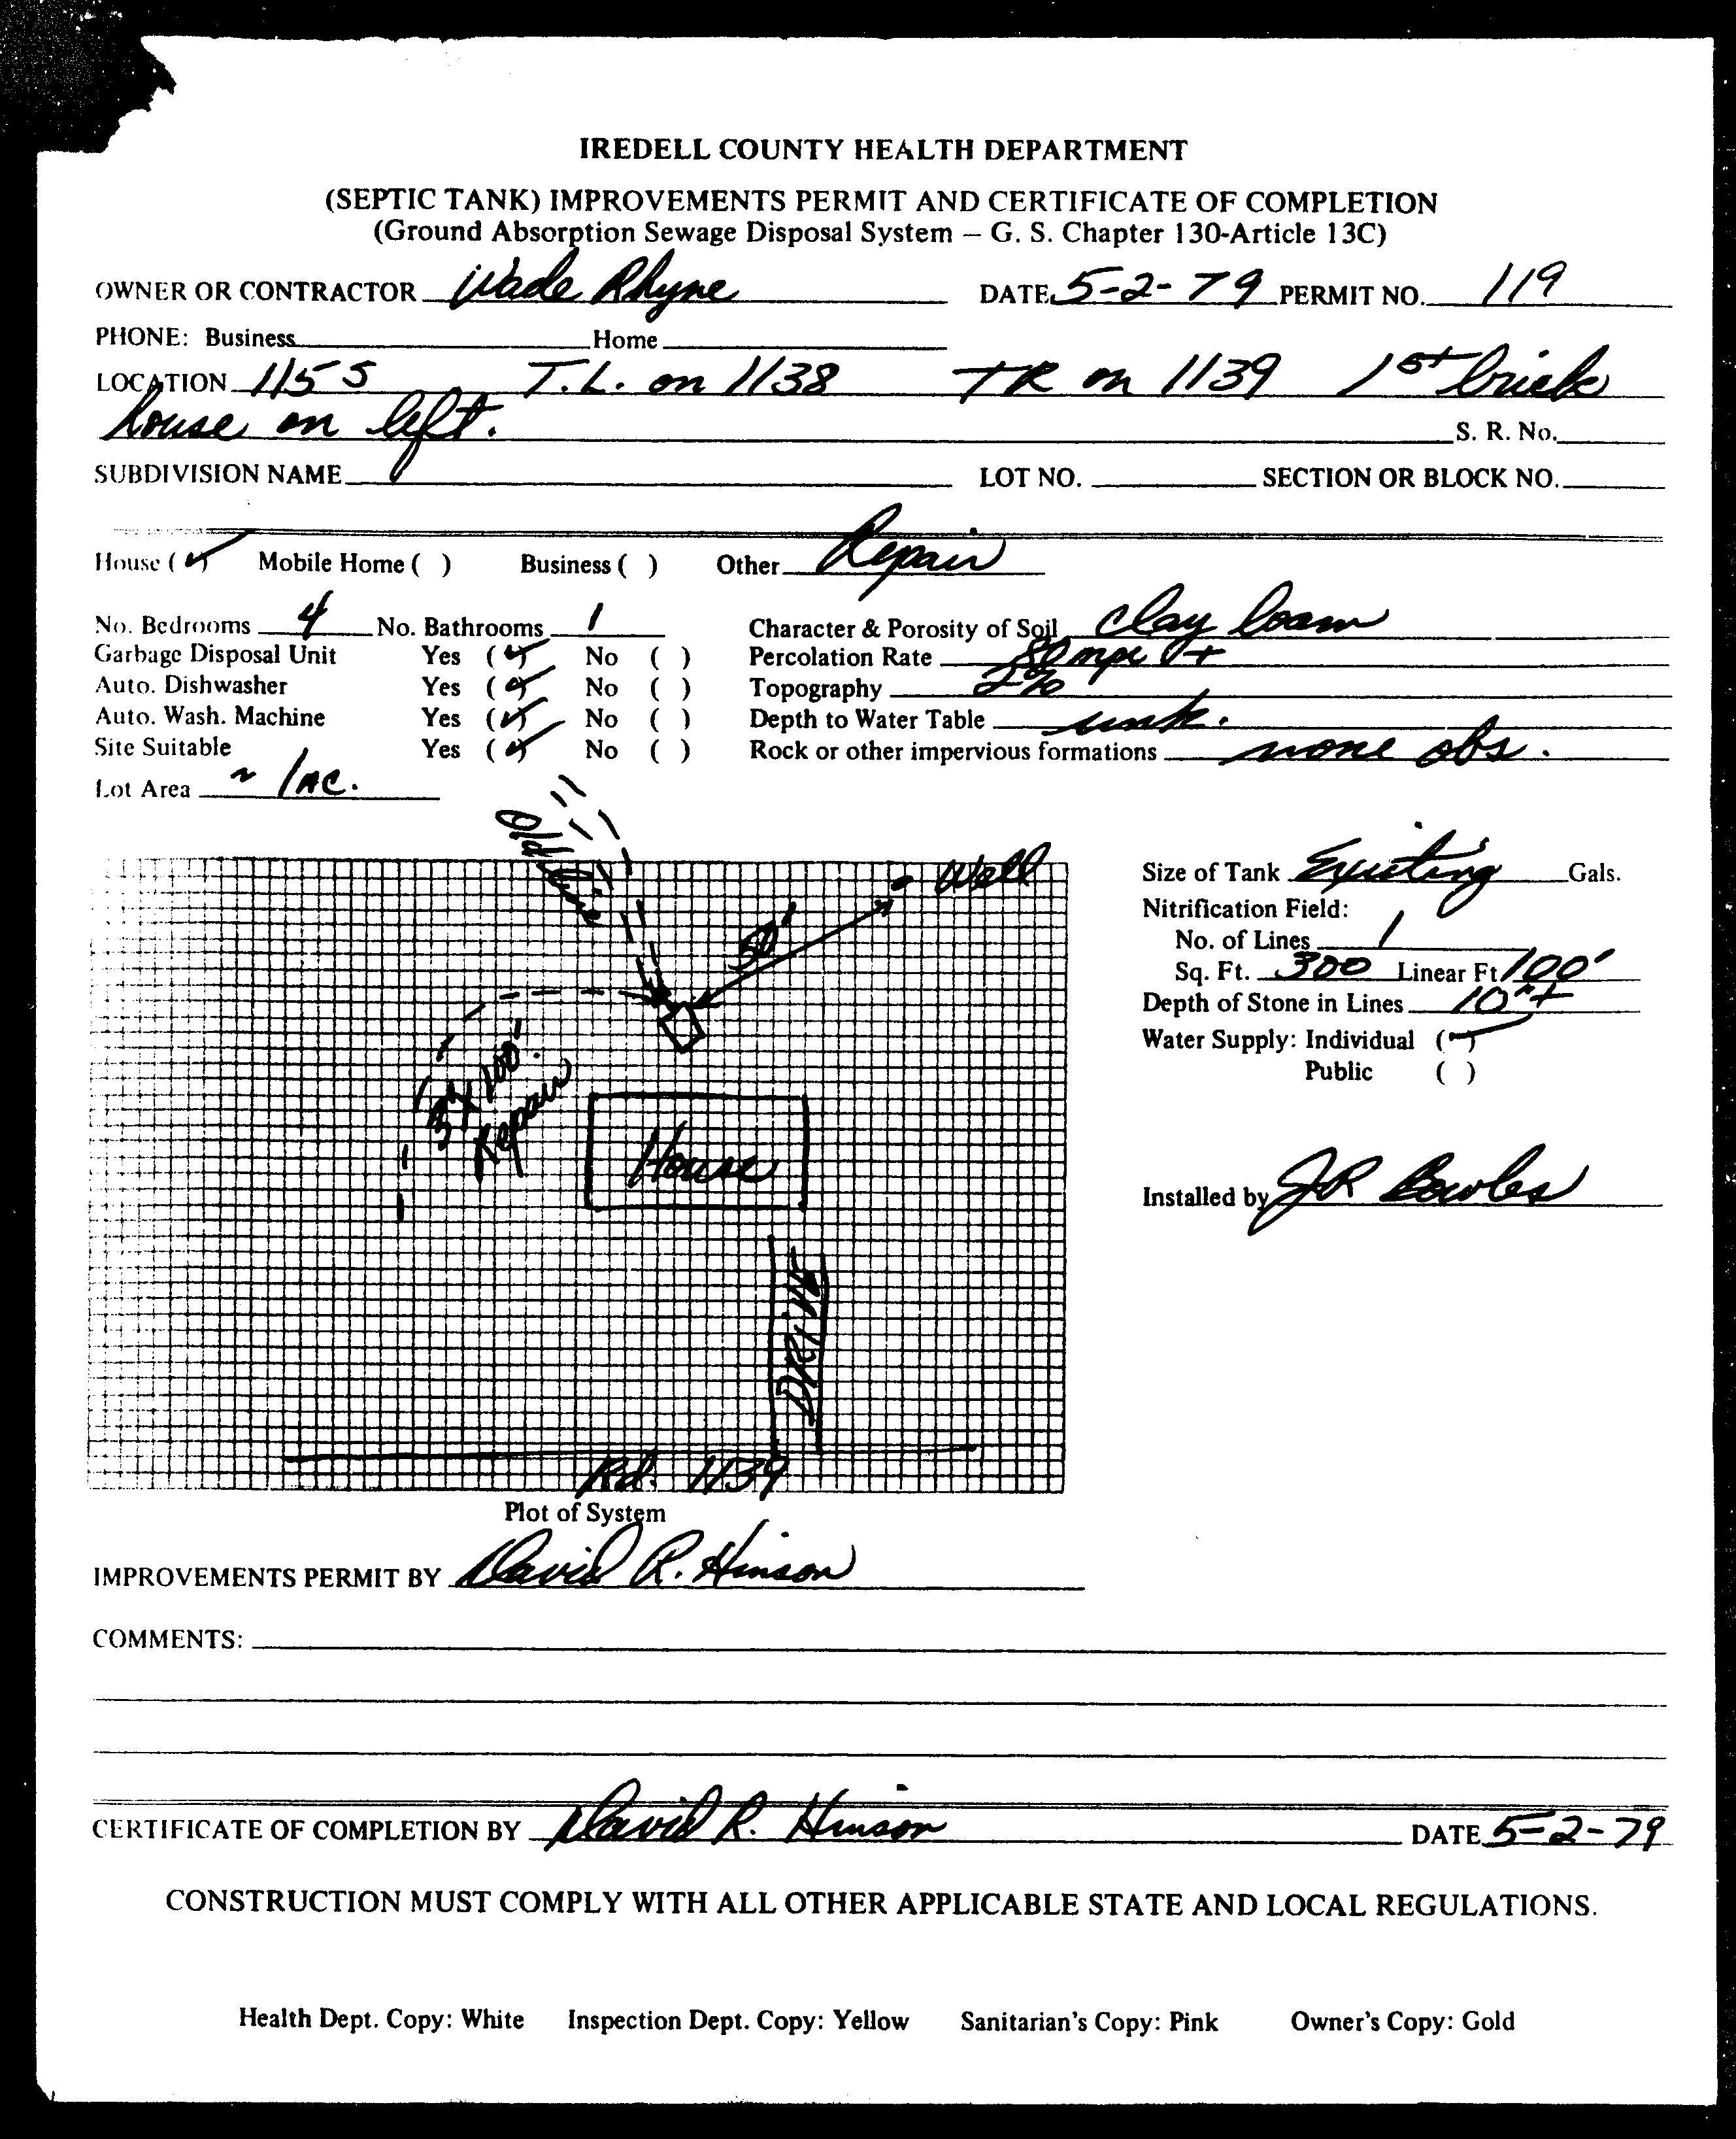 IREDELL COUNTY HEALTH DEPARTMENT
(SEPTIC TANK) IMPROVEMENTS PERMIT AND CERTIFICATE OF COMPLETION
(Ground Absorption Sewage Disposal System – G. S. Chapter 130-Article 13C)
OWNER OR CONTRACTOR Wade Rhyne DATE 5-2-79 PERMIT NO. 119
PHONE: Business Home
LOCATION 115 S T.L. on 1138 TR on 1139 1st brick
house on left. S. R. No.
SUBDIVISION NAME LOT NO. SECTION OR BLOCK NO.
House (✓) Mobile Home ( ) Business ( ) Other Repair
No. Bedrooms 4 No. Bathrooms 1 Character & Porosity of Soil clay loam
Garbage Disposal Unit Yes (✓) No ( ) Percolation Rate 80 mpi +
Auto. Dishwasher Yes (✓) No ( ) Topography 2%
Auto. Wash. Machine Yes (✓) No ( ) Depth to Water Table unk.
Site Suitable Yes (✓) No ( ) Rock or other impervious formations none obs.
Lot Area ~ 1 AC.
Old
Well
50'
3 X 100'
Repair
House
DRIVE
Rd. 1139
Plot of System
Size of Tank Existing Gals.
Nitrification Field:
No. of Lines 1
Sq. Ft. 300 Linear Ft 100'
Depth of Stone in Lines 10" +
Water Supply: Individual (✓)
Public ( )
Installed by JR Bowles
IMPROVEMENTS PERMIT BY David R. Hinson
COMMENTS:
CERTIFICATE OF COMPLETION BY David R. Hinson DATE 5-2-79
CONSTRUCTION MUST COMPLY WITH ALL OTHER APPLICABLE STATE AND LOCAL REGULATIONS.
Health Dept. Copy: White Inspection Dept. Copy: Yellow Sanitarian's Copy: Pink Owner's Copy: Gold